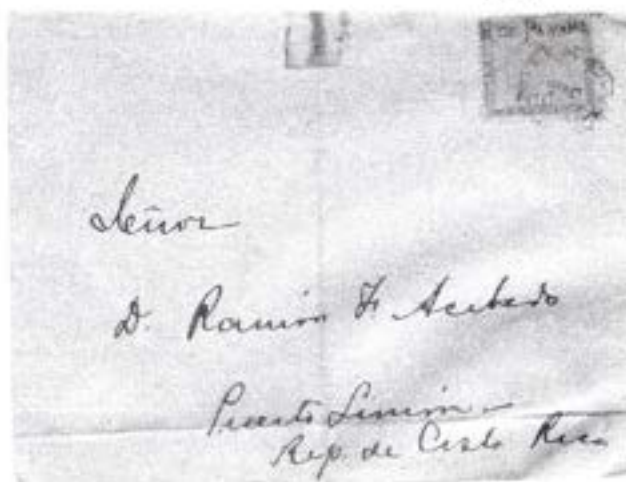 Señor
D. Ramón F. Acebedo
Puerto Limón
Rep. de Costa Rica